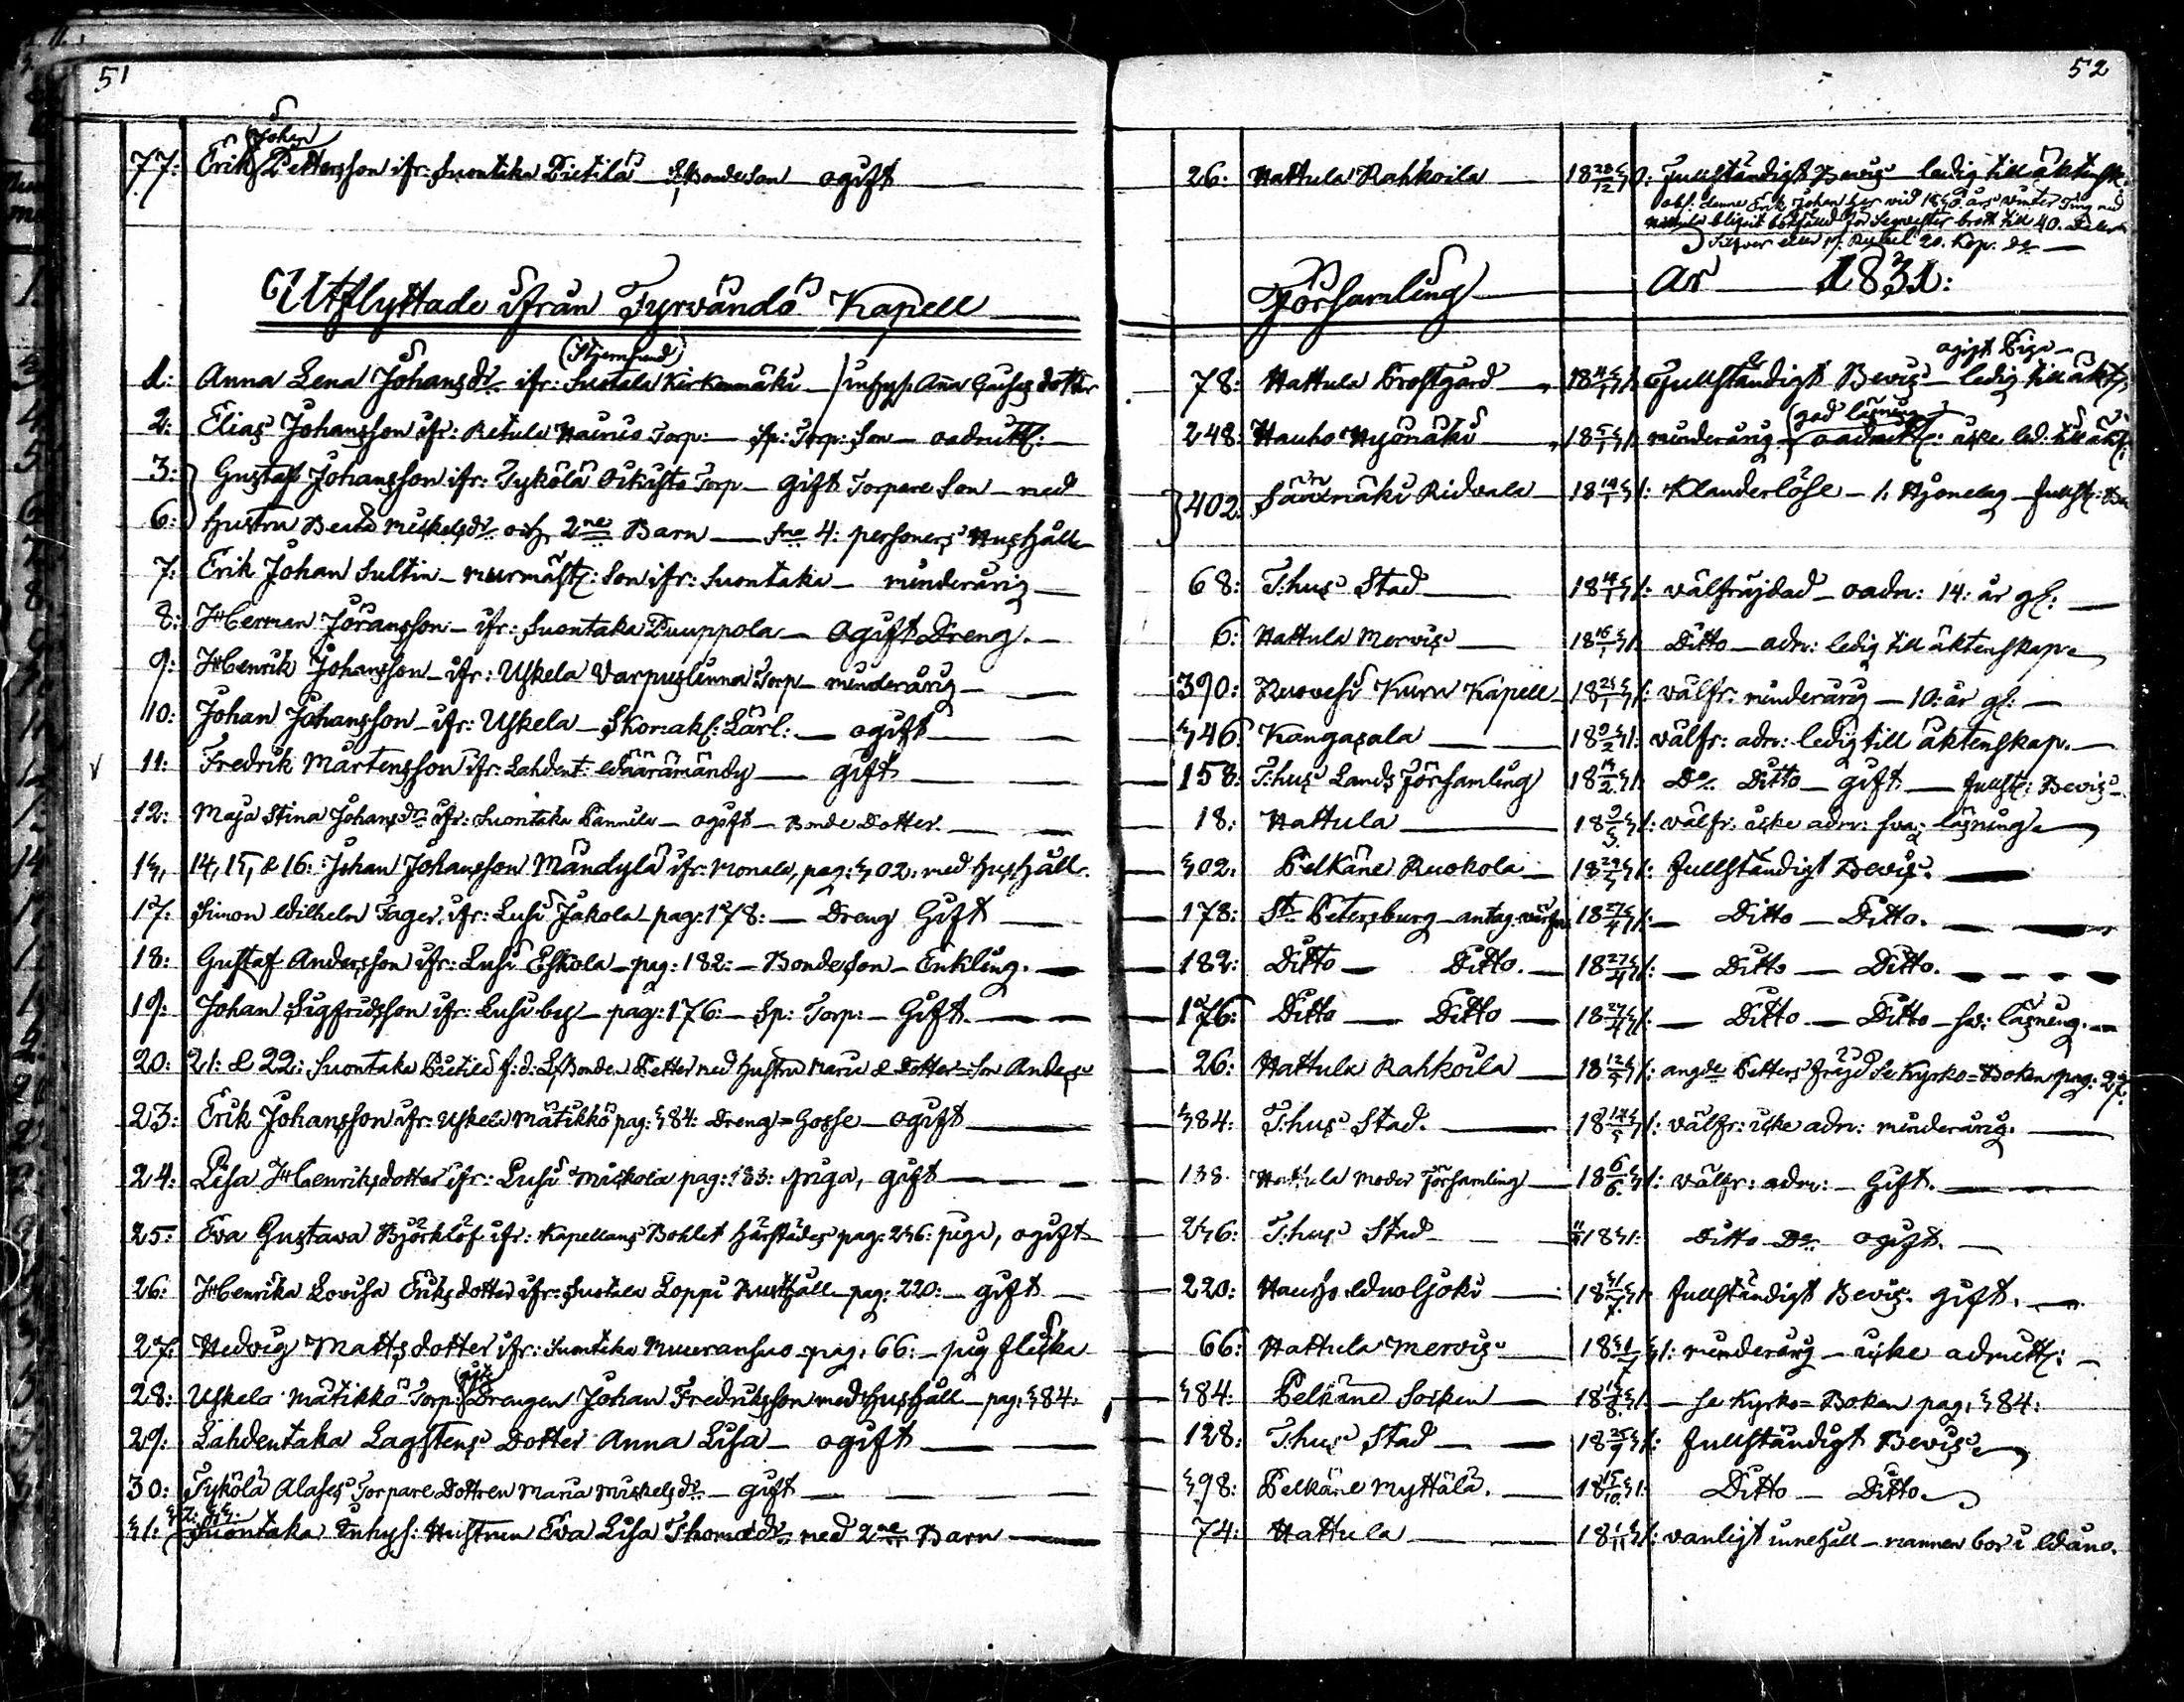 51
52
77: Erik Johan Pettersson ifr: Suontaka Pietilä Bondeson ogift
26: Hattula Rahkoila 18 28/12 30: Fullständigt Bevis ledig till äktensk.
obs: denne Erik Johan har vid 1830 års winter Ting med
blifvit brott till 40. Daler
Silfver eller 20. Kop. 
Utflyttade ifrån Tyrvändö Kapell Församling år 1831:
1: Anna Lena Johansdr ifr: Suotala Kirkonmäki (Stjernsund) inhys: Anna dotter
78: Hattula Prostgård 18 4/1 31: Fullständigt Bevis ogift Piga ledig till äkt:
2: Elias Johansson ifr: Retula Torp: Sp: Torp: Son oadmitt:
248: Hauho Hyömäki 18 5/1 31: minderårig god läsning oadmitt: icke led. till äkt:
3: Gustaf Johansson ifr: Tykölä Torp gift Torpare Son med
402: Sääxmäki Ridvala 18 14/1 31: Klanderlöse i Hjonelag fullst:
6: hustru Beata Mickelsdr och 2ne Barn 4: personers Hushåll
7: Erik Johan Sultin murmäst: Son ifr: Suontaka minderårig
68: T:hus Stad 18 14/1 31: välfräjdad oadm: 14: år gl:
8: Herman Göransson ifr: Suontaka Puuppola Ogift Dreng.
6: Hattula Mervis 18 16/1 31: Ditto adm: ledig till äktenskap
9: Henrik Johansson ifr: Uskela Varpuslinna Torp minderårig
390: Ruovesi Kuru Kapell 18 25/1 31: välfr: minderårig 10: år gl:
10: Johan Johansson ifr: Uskela Skomak: Lärl: ogift
346: Kangasala 18 9/2 31: välfr: adm: ledig till äktenskap.
11: Fredrik Mårtensson ifr: Lahdent: Wäärämändy gift
158: T:hus Lands Församling 18 14/2 31: Do Ditto gift fullst: Bevis
12: Maja Stina Johansdr ifr: Suontaka Pannila ogift Bonde Dotter.
18: Hattula 18 9/3 31: välfr: icke adm: svag läsning
13, 14, 15, & 16: Johan Johansson Mändylä ifr: Monala, pag: 302: med hushåll.
302: Pelkäne Ruokola 18 29/3 31: fullständigt Bevis.
17: Simon Wilhelm Fager, ifr: Lusi Jakola pag: 178: Dreng Gift
178: St. Petersburg 18 27/4 31: Ditto Ditto.
18: Gustaf Andersson ifr: Lusi Eskola pag: 182: Bondeson Enkling.
182: Ditto Ditto. 18 27/4 31: Ditto Ditto.
19: Johan Sigfridsson ifr: Lusi by pag: 176: Sp: Torp: Gift.
176: Ditto Ditto 18 27/4 31: Ditto Ditto sv: läsning.
20: 21: & 22: Suontaka Pietilä f: d: Bonden Petter med hustru Maria & Dotter Son Anders
26: Hattula Rahkoila 18 12/5 31: angde Petters fräjd Se Kyrko=Boken pag: 27.
23: Erik Johansson ifr: Uskela Mätikkö pag: 384: Dreng=Gosse ogift
384: T:hus Stad. 18 14/5 31: välfr: icke adm: minderårig.
24: Lisa Henriksdotter ifr: Lusi Mickola pag: 138: piga, gift
138. Hattula Moder Församling 18 6/6 31: välfr: adm: Gift.
25: Eva Gustava Björklöf ifr: Kapellans Bohlet härstädes pag: 236: piga, ogift
236: T:hus Stad 1831: Ditto Do ogift.
26: Henrika Lovisa Eriksdotter ifr: Suotala Loppi Rusthåll pag: 220: gift
220: Hauho Wuoljoki 18 31/7 31: fullständigt Bevis. gift.
27: Hedvig Mattsdotter ifr: Suontaka Muuransuo pag: 66: pig flicka
66: Hattula Mervis 18 31/7 31: minderårig icke admitt:
28: Uskela Mätikkö Torp: gifte Drengen Johan Fredriksson med hushåll pag: 384:
384: Pelkäne Socken 18 15/8 31: Se Kyrko=Boken pag: 384:
29: Lahdentaka Lagstens Dotter Anna Lisa ogift
128: T:hus Stad 18 25/9 31: fullständigt Bevis
30: Tykölä Alases Torpare Dottren Maria Mickelsdr gift
398: Pelkäne Myttälä. 18 15/10 31: Ditto Ditto
31: 32: 33: Suontaka Inhys: Hustrun Eva Lisa Thomasdr med 2ne Barn
74: Hattula 18 1/11 31: vanligt innehåll mannen bor i Wåno.